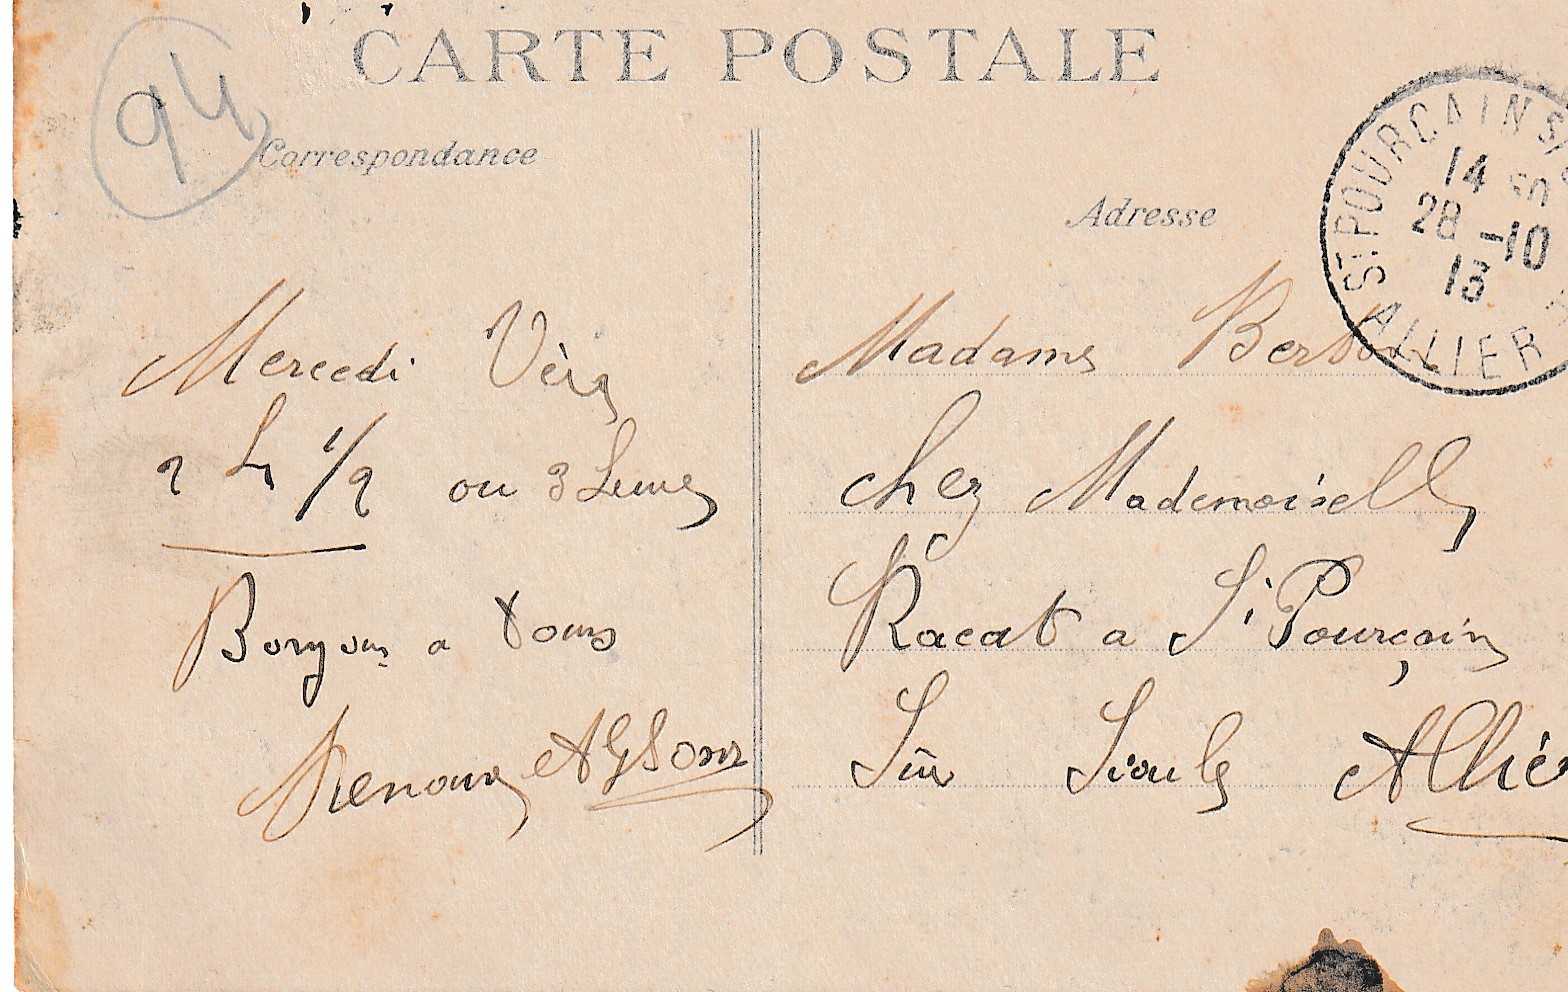 CARTE POSTALE
94
Correspondance
Adresse
St POURÇAIN S/
14
28 -10
13
ALLIER
Mercedi Vers
2 h 1/2 ou 3 heures
Bonjour a tous
Renoux
Madame
chez Mademoiselle
Racat a St Pourçain
Sur Sioule Allier